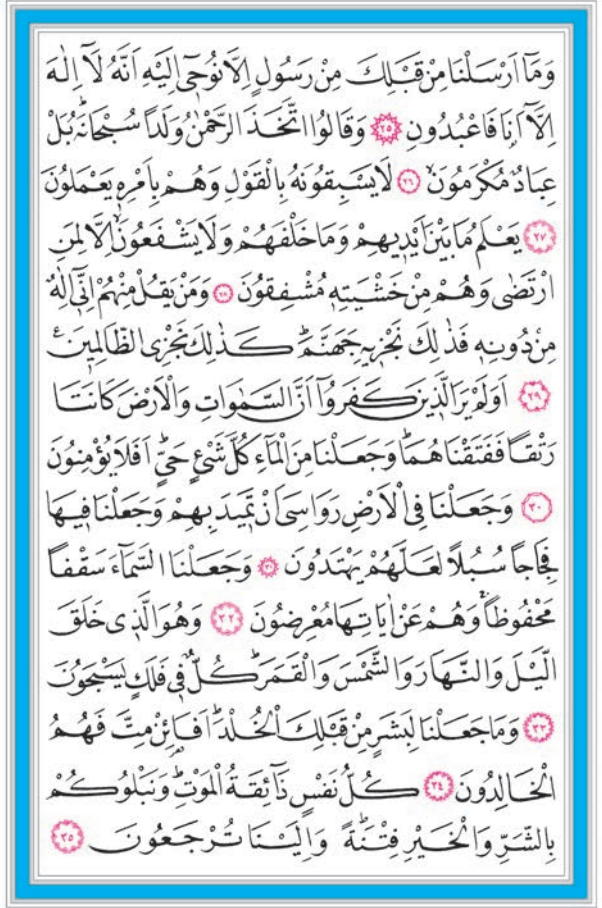 وَمَٓا اَرْسَلْنَا مِنْ قَبْلِكَ مِنْ رَسُولٍ اِلَّا نُوحٖٓى اِلَيْهِ اَنَّهُ لَٓا اِلٰهَ
اِلَّٓا اَنَا۬ فَاعْبُدُونِ ﴿٢٥﴾ وَقَالُوا اتَّخَذَ الرَّحْمٰنُ وَلَداً سُبْحَانَهُۜ بَلْ
عِبَادٌ مُكْرَمُونَۙ ﴿٢٦﴾ لَا يَسْبِقُونَهُ بِالْقَوْلِ وَهُمْ بِاَمْرِهٖ يَعْمَلُونَ
﴿٢٧﴾ يَعْلَمُ مَا بَيْنَ اَيْدٖيهِمْ وَمَا خَلْفَهُمْ وَلَا يَشْفَعُونَۙ اِلَّا لِمَنِ
ارْتَضٰى وَهُمْ مِنْ خَشْيَتِهٖ مُشْفِقُونَ ﴿٢٨﴾ وَمَنْ يَقُلْ مِنْهُمْ اِنّٖٓى اِلٰهٌ
مِنْ دُونِهٖ فَذٰلِكَ نَجْزٖيهِ جَهَنَّمَۜ كَذٰلِكَ نَجْزِى الظَّالِمٖينَ۟
﴿٢٩﴾ اَوَلَمْ يَرَ الَّذٖينَ كَفَرُٓوا اَنَّ السَّمٰوَاتِ وَالْاَرْضَ كَانَتَا
رَتْقاً فَفَتَقْنَاهُمَاۜ وَجَعَلْنَا مِنَ الْمَٓاءِ كُلَّ شَیْءٍ حَىٍّۜ اَفَلَا يُؤْمِنُونَ
﴿٣٠﴾ وَجَعَلْنَا فِى الْاَرْضِ رَوَاسِىَ اَنْ تَمٖيدَ بِهِمْ وَجَعَلْنَا فٖيهَا
فِجَاجاً سُبُلاً لَعَلَّهُمْ يَهْتَدُونَ ﴿٣١﴾ وَجَعَلْنَا السَّمَٓاءَ سَقْفاً
مَحْفُوظاًۚ وَهُمْ عَنْ اٰيَاتِهَا مُعْرِضُونَ ﴿٣٢﴾ وَهُوَ الَّذٖى خَلَقَ
الَّيْلَ وَالنَّهَارَ وَالشَّمْسَ وَالْقَمَرَۜ كُلٌّ فٖى فَلَكٍ يَسْبَحُونَ
﴿٣٣﴾ وَمَا جَعَلْنَا لِبَشَرٍ مِنْ قَبْلِكَ الْخُلْدَۜ اَفَا۬ئِنْ مِتَّ فَهُمُ
الْخَالِدُونَ ﴿٣٤﴾ كُلُّ نَفْسٍ ذَٓائِقَةُ الْمَوْتِۜ وَنَبْلُوكُمْ
بِالشَّرِّ وَالْخَيْرِ فِتْنَةًۜ وَاِلَيْنَا تُرْجَعُونَ ﴿٣٥﴾